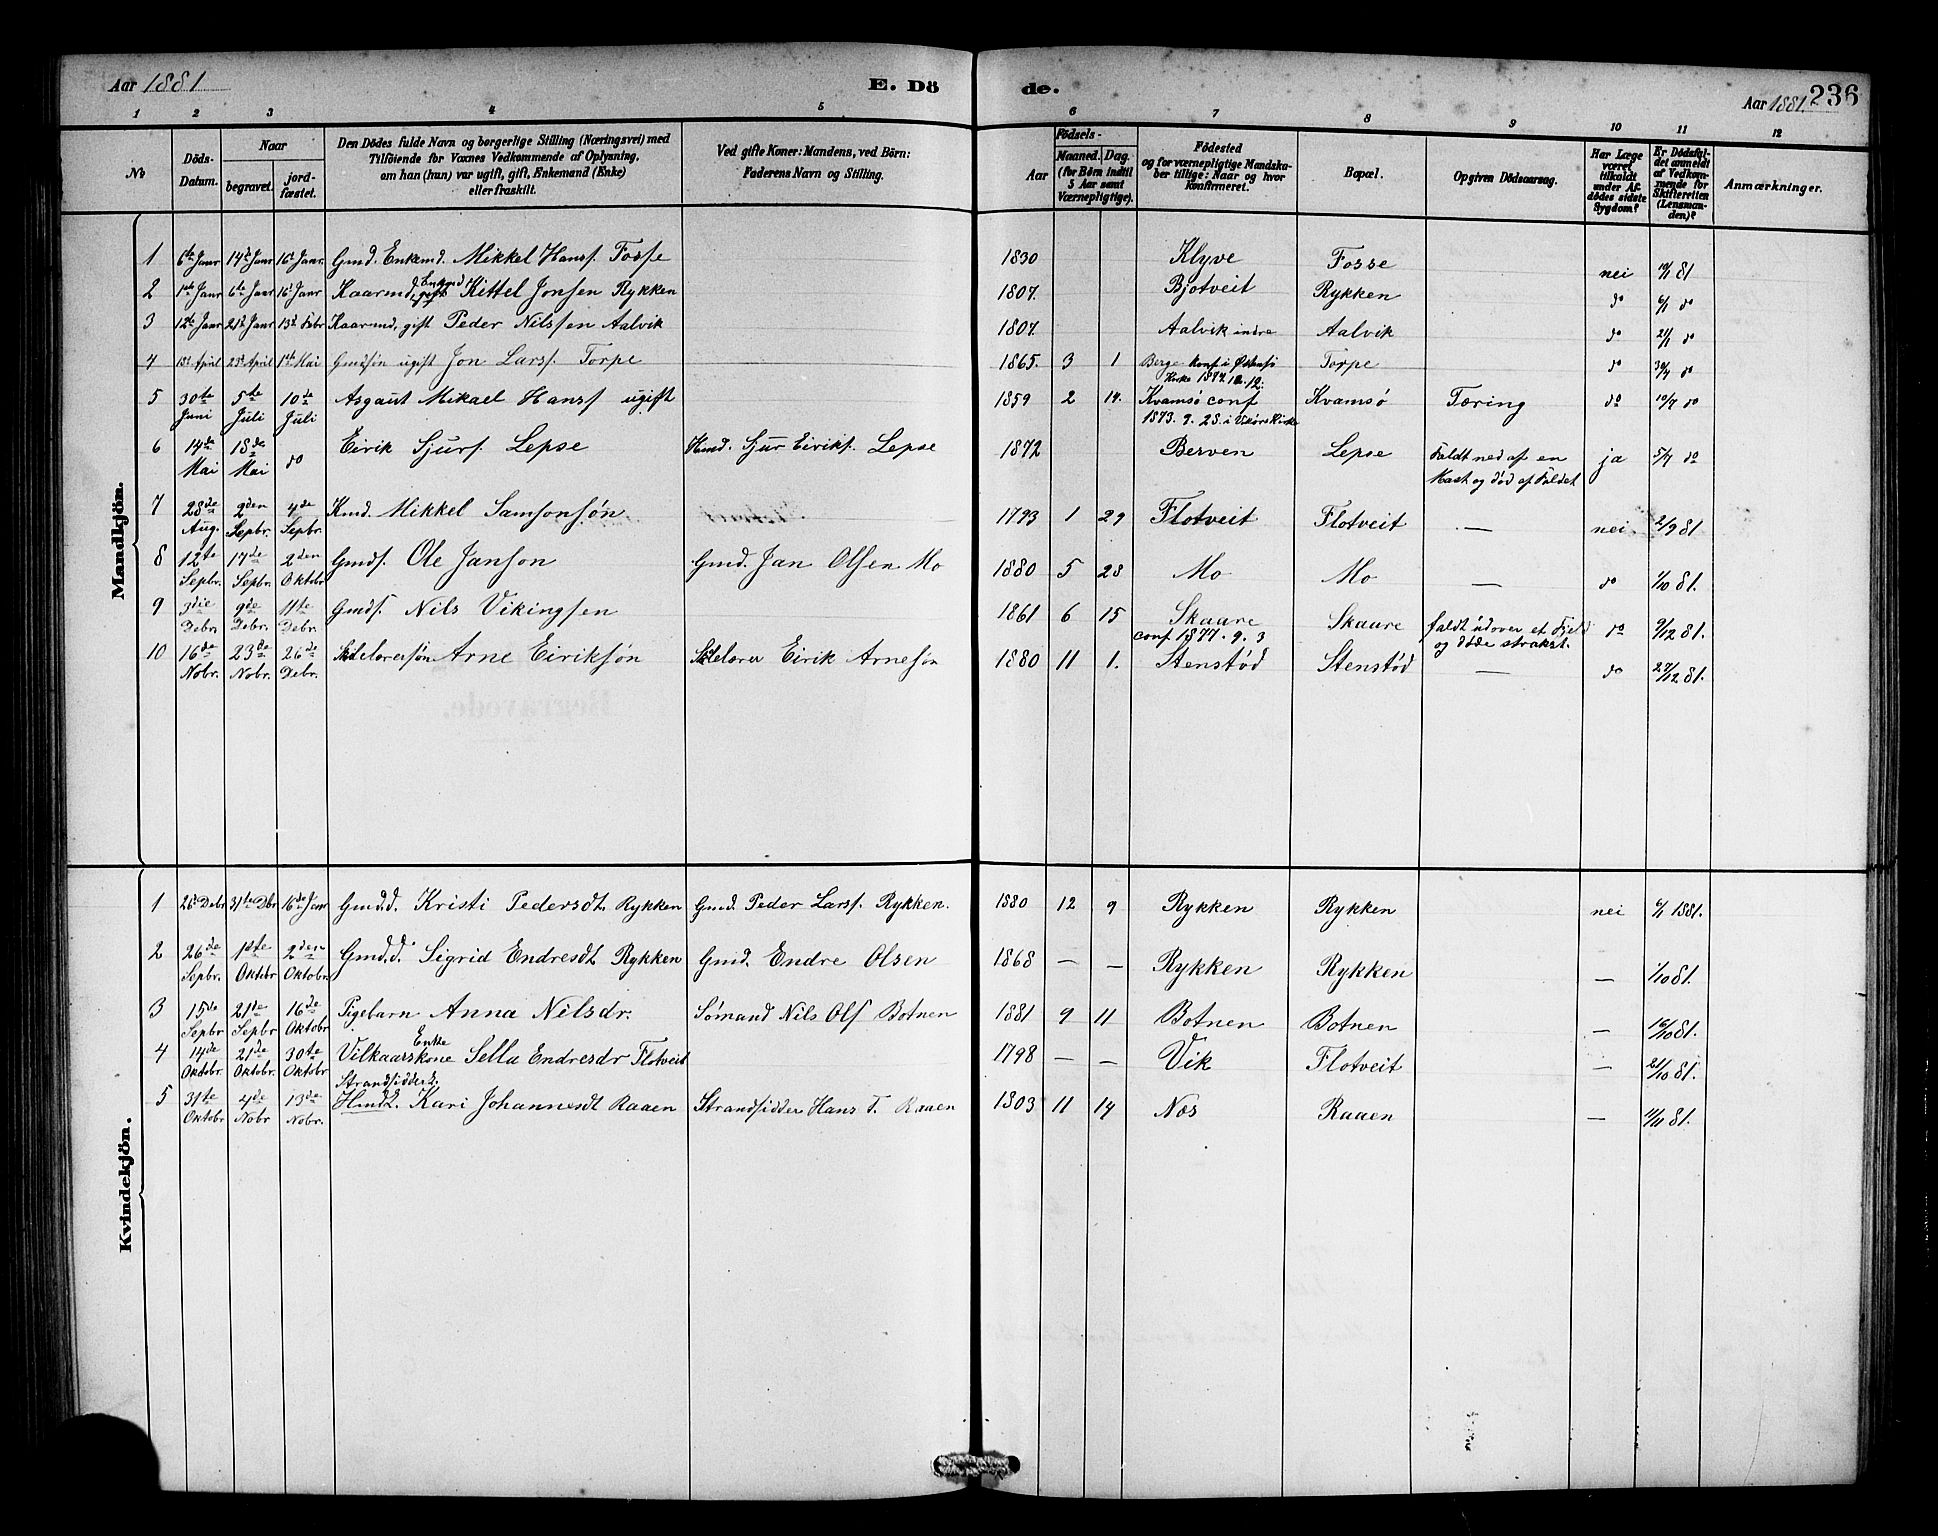 Aar 1881
E. Dö
de.
Aar 1881. 236
1 2 3 4 5 6 7 8 9 10 11 12
No
Döds-Datum.
Naar
begravet.
jord-fæstet.
Den Dödes fulde Navn og borgerlige Stilling (Næringsvei) med
Tilföiende for Voxnes Vedkommende af Oplysning,
om han (hun) var ugift, gift, Enkemand (Enke)
eller fraskilt.
Ved gifte Koner: Mandens, ved Börn:
Faderens Navn og Stilling.
Aar
Födsels-
Maaned. Dag.
(for Börn indtil
5 Aar samt
Værnepligtige).
Födested
og for værnepligtige Mandska-
ber tillige: Naar og hvor
konfirmeret.
Bopæl.
Opgiven Dödsaarsag.
Har Læge
været
tilkaldt
under Af-
dödes sidste
Sygdom?
Er Dödsfal-
det anmeldt
af Vedkom-
mende for
Skifteretten
(Lensman-
den)?
Anmærkninger.
Mandkjön.
1 6te Janr 14de Janr 16de Janr. Gmd. Enkemd. Mikkel Hans. Fosse 1830 Klyve Fosse nei 14/1 81
2 1ste Janr 6te Janr 16de Janr Kaarmd, gift Enkemd Kittel Jonsen Rykken 1807. Bjotveit Rykken do 6/1 do
3 12te Janr 21de Janr 13de Febr Kaarmd, gift Peder Nilssen Aalvik 1807. Aalvik indre Aalvik do 21/1 do
4 18de April 23de April 1ste Mai Gmdsøn ugift Jon Larss. Torpe 1865. 3 1 Berge Konf. i Østensø Torpe do 30/4 do
5 30te Juni 5te Juli 10de Juli Asgaut Mikael Hans. ugift 1859 2 14. Kvamsø conf Kvamsø Tæring do 10/7 do
1873. 9. 28. i Vikørs Kirke
6 14de Mai 18de Mai do Eirik Sjurs. Lepse Hmd. Sjur Eiriks. Lepse 1872 Berven Lepse Faldt ned af en ja 5/7 do
Mast og død af Faldet
7 28de Aug. 2den Sepbr. 4de Sepbr. Kmd. Mikkel Samsonsøn 1793 1 29 Flotveit Flotveit — nei 2/9 81
8 12te Sepbr. 17de Sepbr. 2den Oktobr Gmds. Ole Janson Gmd. Jan Olsen Mo 1880 5 28 Mo Mo — do 1/10 81.
9 3die Debr. 9de Debr. 11te Debr. Gmds. Nils Vikingsen 1861 6 15 Skaare Skaare faldt udover et Fjeld do 9/12 81.
conf 1877. 9. 3 og døde strakst.
10 16de Nobr. 23de Nobr. 26de Debr. Skolelærersøn Arne Eiriksøn Skolelærer Eirik Arnesøn 1880 11 1. Stenstød Stenstød — do 27/12 81.
Kvindekjön.
1 26de Debr 31te Dbr 16de Janr Gmd.d. Kristi Pedersdt. Rykken Gmd. Peder Larss. Rykken. 1880 12 9 Rykken Rykken nei 6/1 1881.
2 26de Sepbr. 1ste Oktobr 2den Oktobr. Gmd.d. Sigrid Endresdt Rykken Gmd. Endre Olsen 1868 — — Rykken Rykken — 1/10 81.
3 15de Sepbr 21de Sepbr 16de Oktobr. Pigebarn Anna Nilsdr. Sømand Nils Ols. Botnen 1881 9 11 Botnen Botnen — 16/10 81.
4 14de Oktobr 21de Oktobr. 30te Oktobr Vilkaarskone Enke Sella Endresdr Flotveit 1798 — — Vik Flotveit — 21/10 81.
Strandsidderd.
5 31te Oktobr 4de Nobr 13de Nobr. Hmdd. Kari Johannesdt Raaen Strandsidder Hans T. Raaen 1803 11 14 Nes Raaen — 11/11 81.